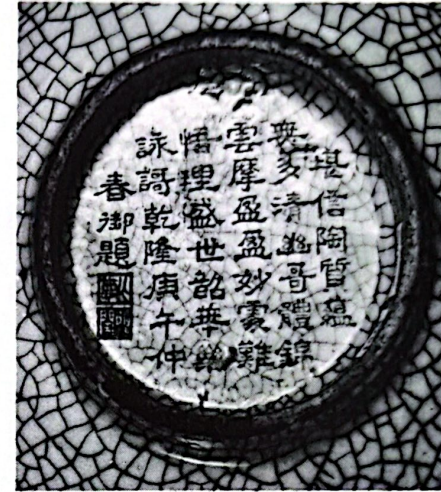 甚信陶質蘊
無多清幽哥體錦
雲摩盈盈妙裛難
悟理盛世韶華
詠謌乾隆庚午仲
春御題